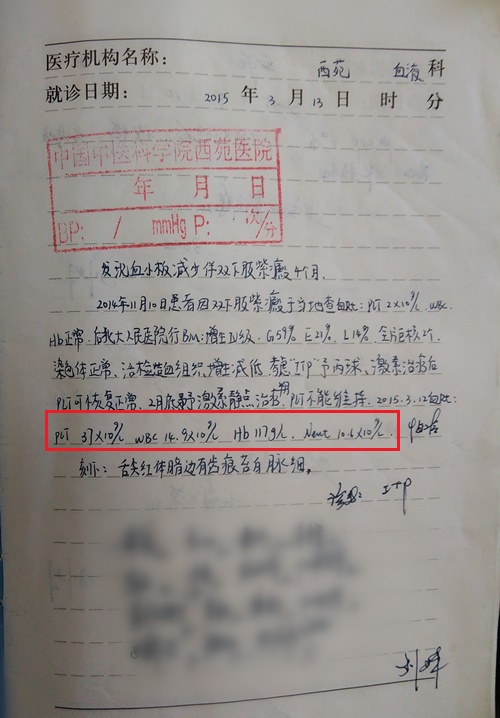 医疗机构名称: 西苑 血液科
就诊日期: 2015 年 3 月 13 日 时 分
中国中医科学院西苑医院
年 月 日
BP: / mmHg P: 次/分
发现血小板减少伴双下肢紫癜4个月.
2014年11月10日患者因双下肢紫癜于当地查血常规: PLT 2×10⁹/L WBC.
Hb正常. 后北大人民医院行BM: 增生IV级. G59% E21% L14% 全片巨核2个.
染色体正常、活检造血组织增生减低 考虑"ITP"予丙球、激素治疗后
PLT可恢复正常. 2月底 激素静点治疗 PLT不能维持. 2015.3.12血常规:
PLT 37×10⁹/L WBC 14.9×10⁹/L Hb 117g/L. Neut 10.6×10⁹/L.
舌尖红体胖边有齿痕苔白脉细。
诊断: ITP